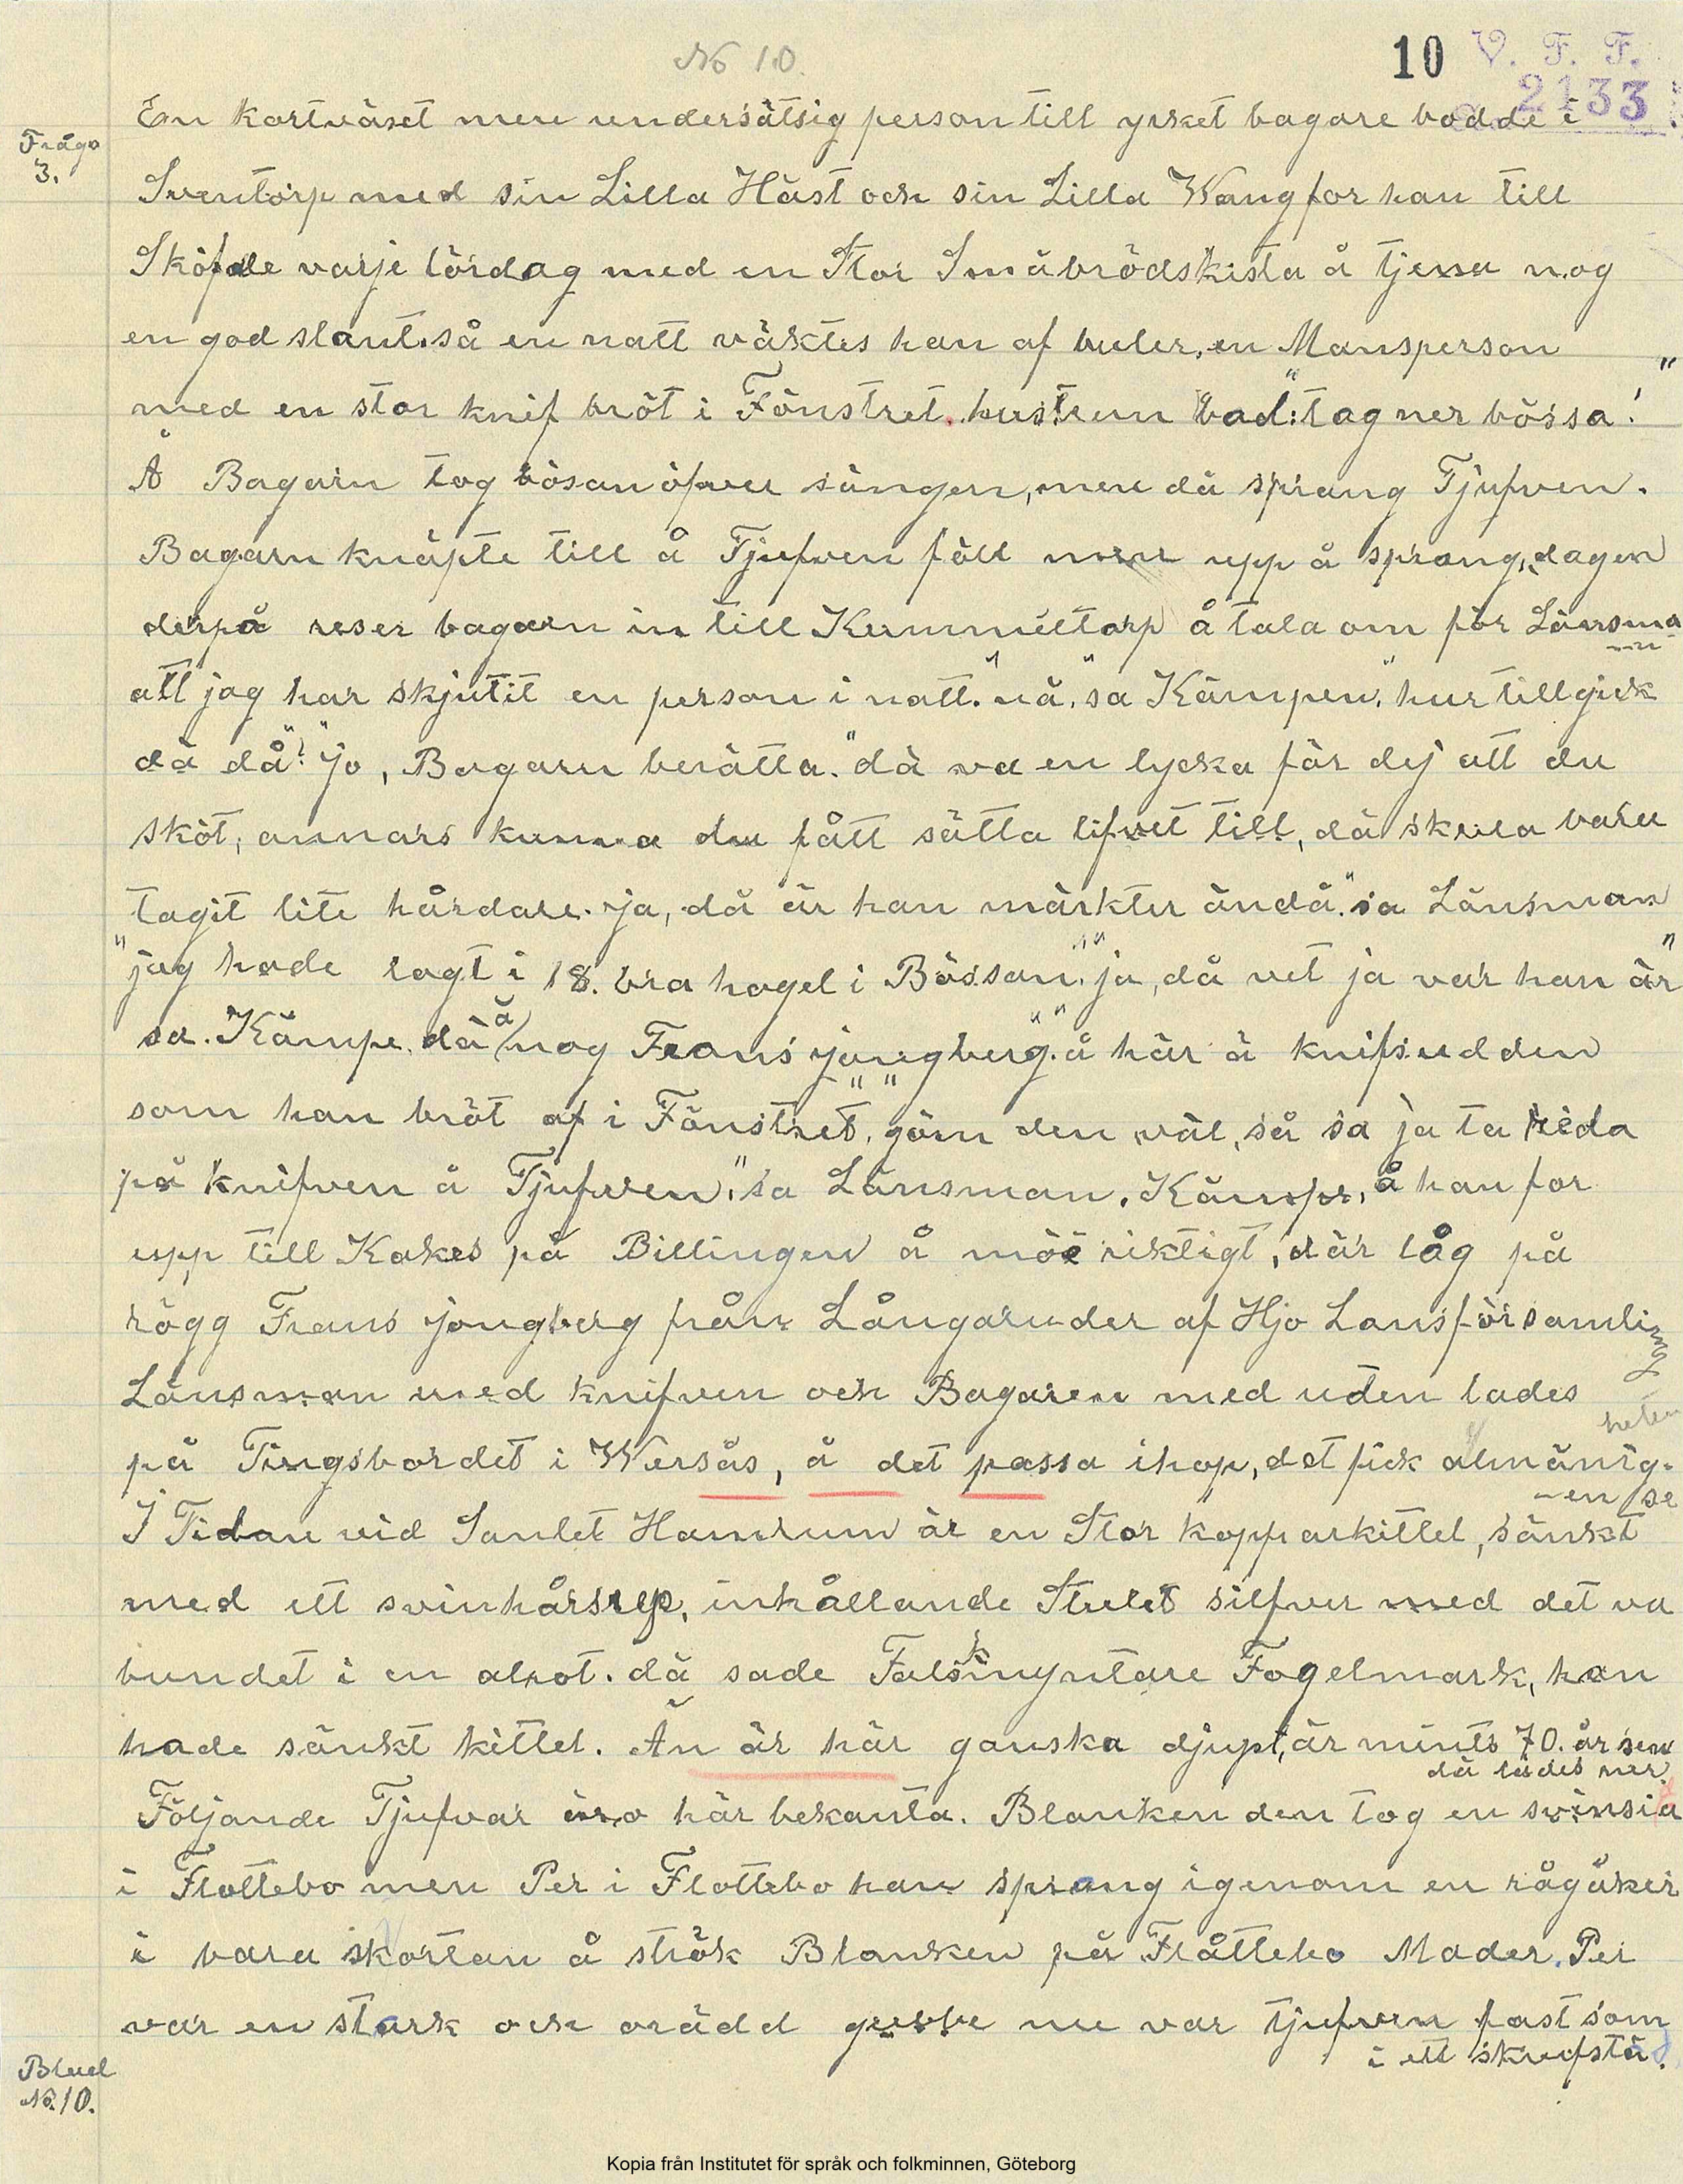 No 10.
10 V. F. F.
2133
Fråga
3.
En kortväxt men undersätsig person till yrket bagare bodde i
Sventorp med sin Lilla Häst och sin Lilla Wang for han till
Sköfde varje lördag med en Stor Småbrödskista å tjena nog
en god slant. så en natt väktes han af buler, en Mansperson
med en stor knif bröt i Fönstret. hustrun bad: "tag ner bössa!"
Å Bagarn tog bösan öfver sängen, men då sprang Tjufven.
Bagarn knäpte till å Tjufven föll men upp å sprang, dagen
derpå reser bagarn in till Kummeltorp å tala om för Länsma
-n
att jag har skjutit en person i natt. "nå," sa Kämpen, "hur tillgick
dä då?" "jo, Bagarn berätta. "dä va en lycka för dej att du
sköt, annars kunna du fått sätta lifvet till, dä skula bara
tagit lite hårdare. ja, då är han märkter ändå." sa Länsman
"jag hade lagt i 18. bra hagel i Bössan." "ja, då vet ja var han är"
sa. Kämpe. dä ä nog Frans jungberg." "å här ä knifsudden
som han bröt af i Fönstret," "göm den väl, så sa ja ta reda
på knifven å Tjufven," sa Länsman. Kämpe, å han for
upp till Kakes på Billingen å möe riktigt, där låg på
rögg Frans jongberg från Långaruder af Hjo Lansförsamling
Länsman med knifven och Bagaren med uden lades
på Tingsbordet i Wersås, å det passa ihop, det fick almänig-
heten
-en se
I Tidan vid Santet Hamrum är en Stor kopparkittel, sänkt
med ett svinhårsrep, inhållande Stulet silfver med det va
bundet i en alrot. dä sade Falskmyntare Fogelmark, han
hade sänkt kittel. Än är här ganska djupt, är mints 70. år sen
dä lades ner.
Följande Tjufvar äro här bekanta. Blanken den tog en svinsia
i Flottebo men Per i Flottebo han sprang igenom en rågåker
i bara skortan å strök Blanken på Flåttebo Mader. Per
var en stark och orädd gubbe nu var tjufven fast som
i ett skrufstä.
Blad
No. 10.
Kopia från Institutet för språk och folkminnen, Göteborg